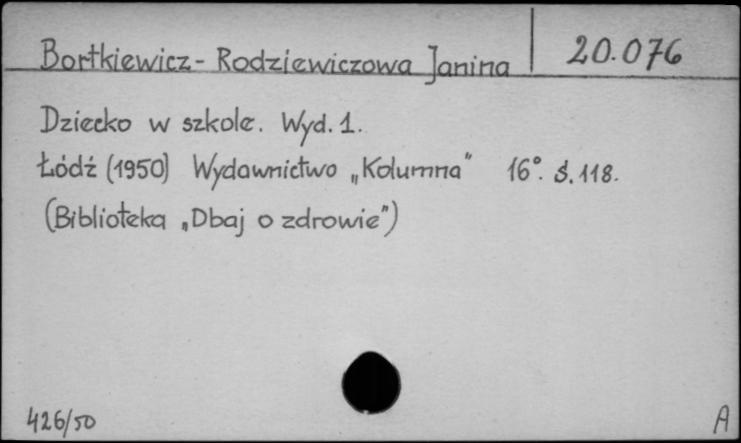 Bortkiewicz - Rodziewiczowa Janina 20.076
Dziecko w szkole. Wyd. 1.
Łódź (1950) Wydawnictwo „Kolumna” 16°. s. 118.
(Biblioteka „Dbaj o zdrowie”)
426/50 A